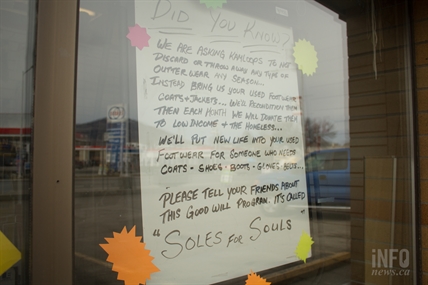 DID YOU KNOW?
WE ARE ASKING KAMLOOPS TO NOT
DISCARD OR THROW AWAY ANY TYPE OF
OUTTER WEAR ANY SEASON...
INSTEAD BRING US YOUR USED FOOTWEAR
COATS + JACKETS... WE'LL RECONDITION THEM
THEN EACH MONTH WE WILL DONATE THEM
TO LOW INCOME + THE HOMELESS...
WE'LL PUT NEW LIFE INTO YOUR USED
FOOTWEAR FOR SOMEONE WHO NEEDS
COATS - SHOES - BOOTS - GLOVES BELTS...
PLEASE TELL YOUR FRIENDS ABOUT
THIS GOOD WILL PROGRAM. IT'S CALLED
"SOLES FOR SOULS"
iNFO
news.ca